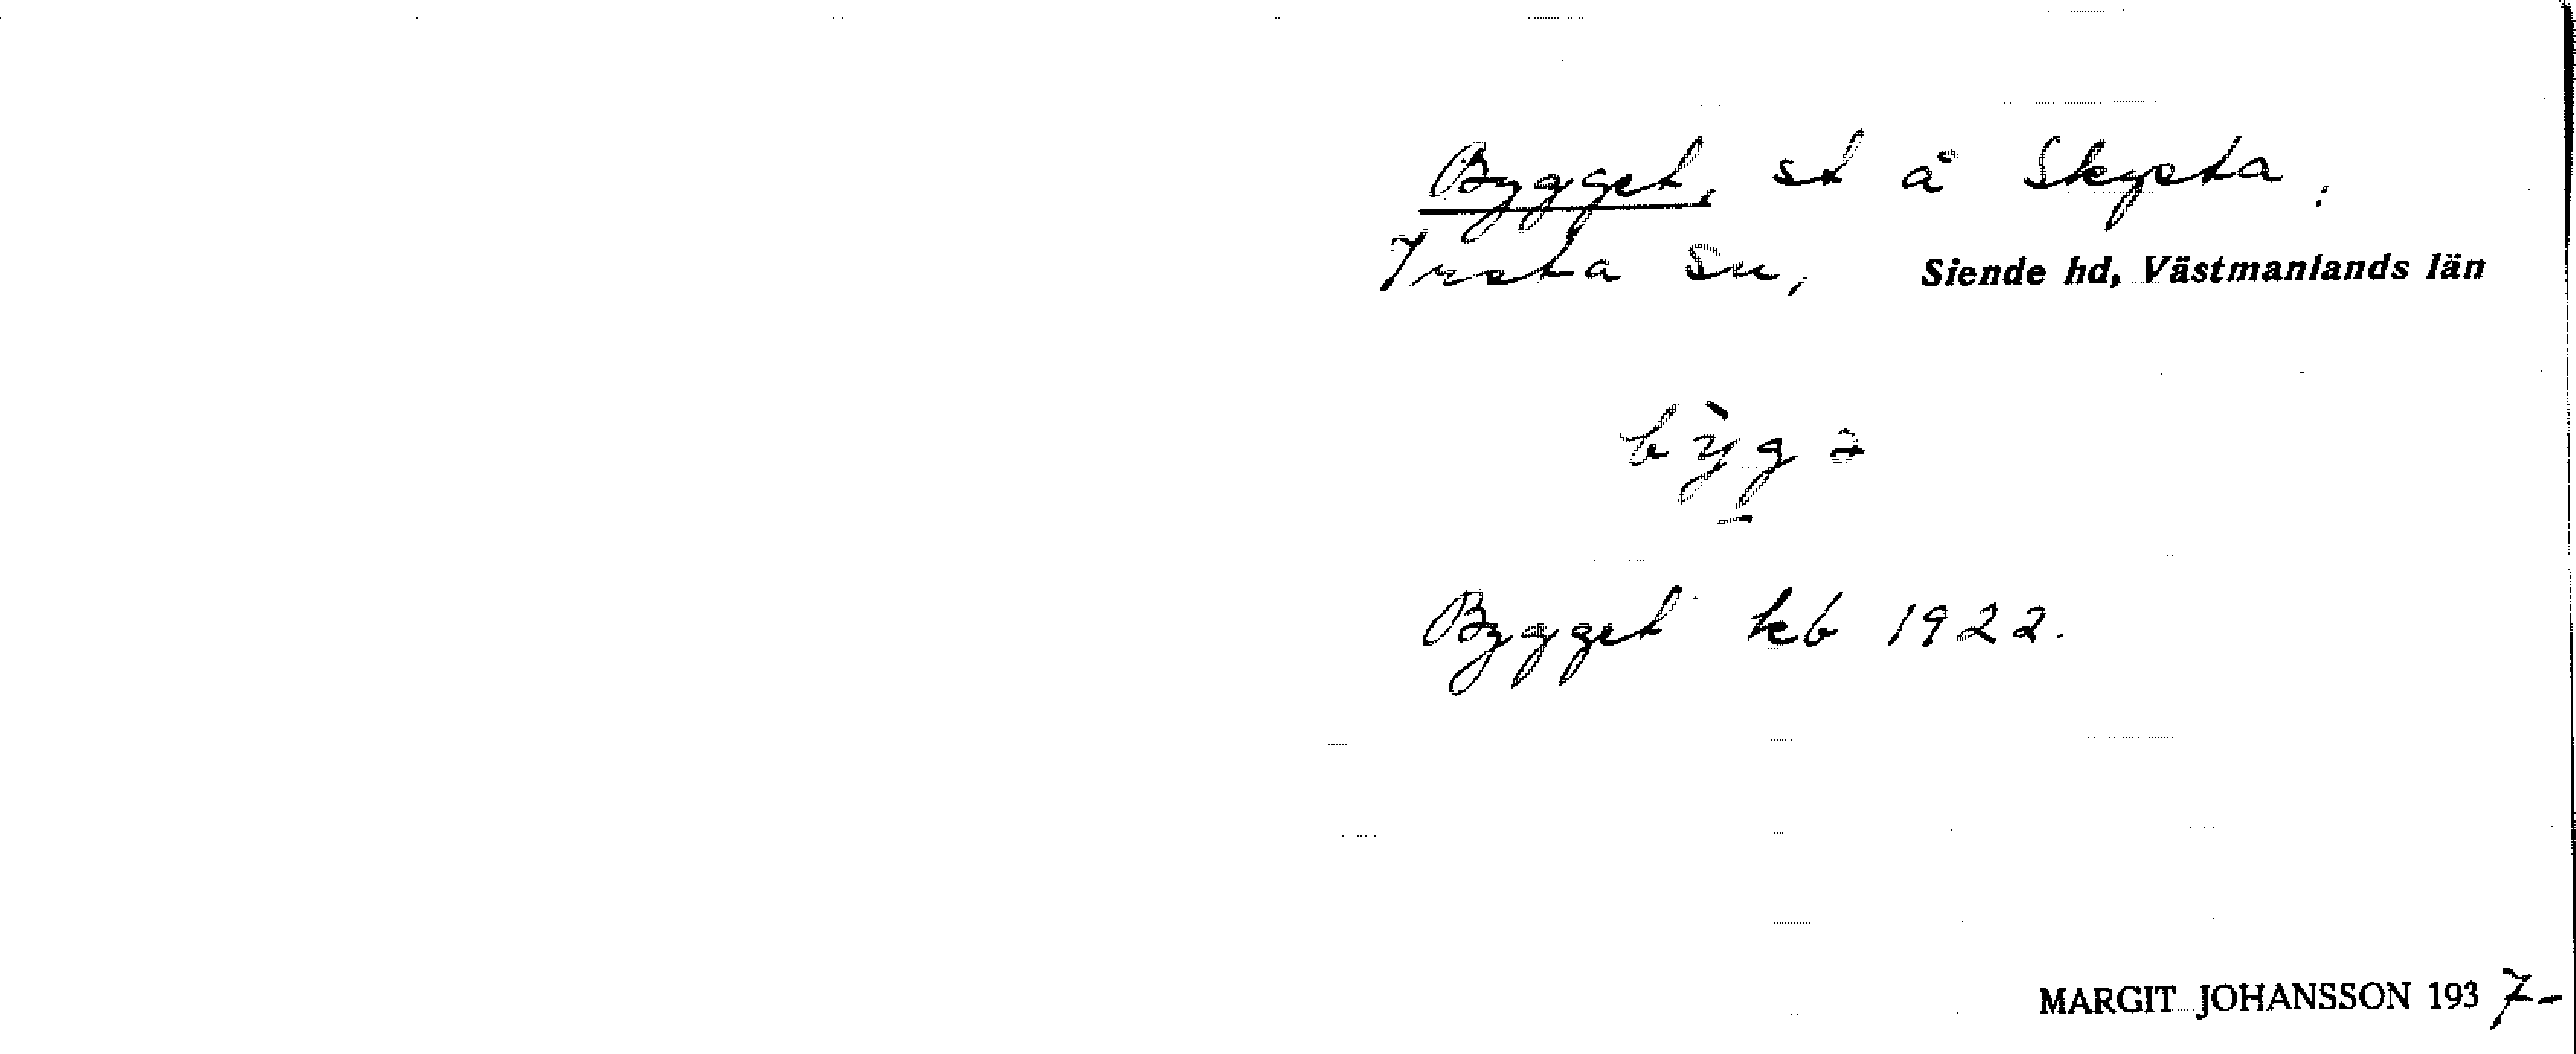 Bygget, st å Skysta,
Irsta sn, Siende hd, Västmanlands län
bỳg̱ə
Bygget kb 1922.
MARGIT JOHANSSON 1937-